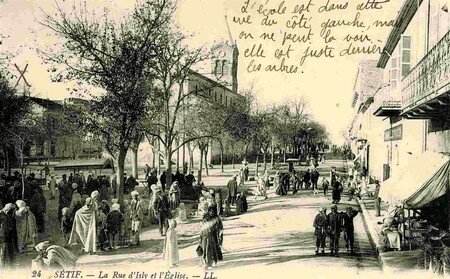 L'école est dans cette
rue du côté gauche, mais
on ne peut la voir.
elle est juste derrière
les arbres.
24 SÉTIF. - La Rue d'Isly et l'Église. - LL